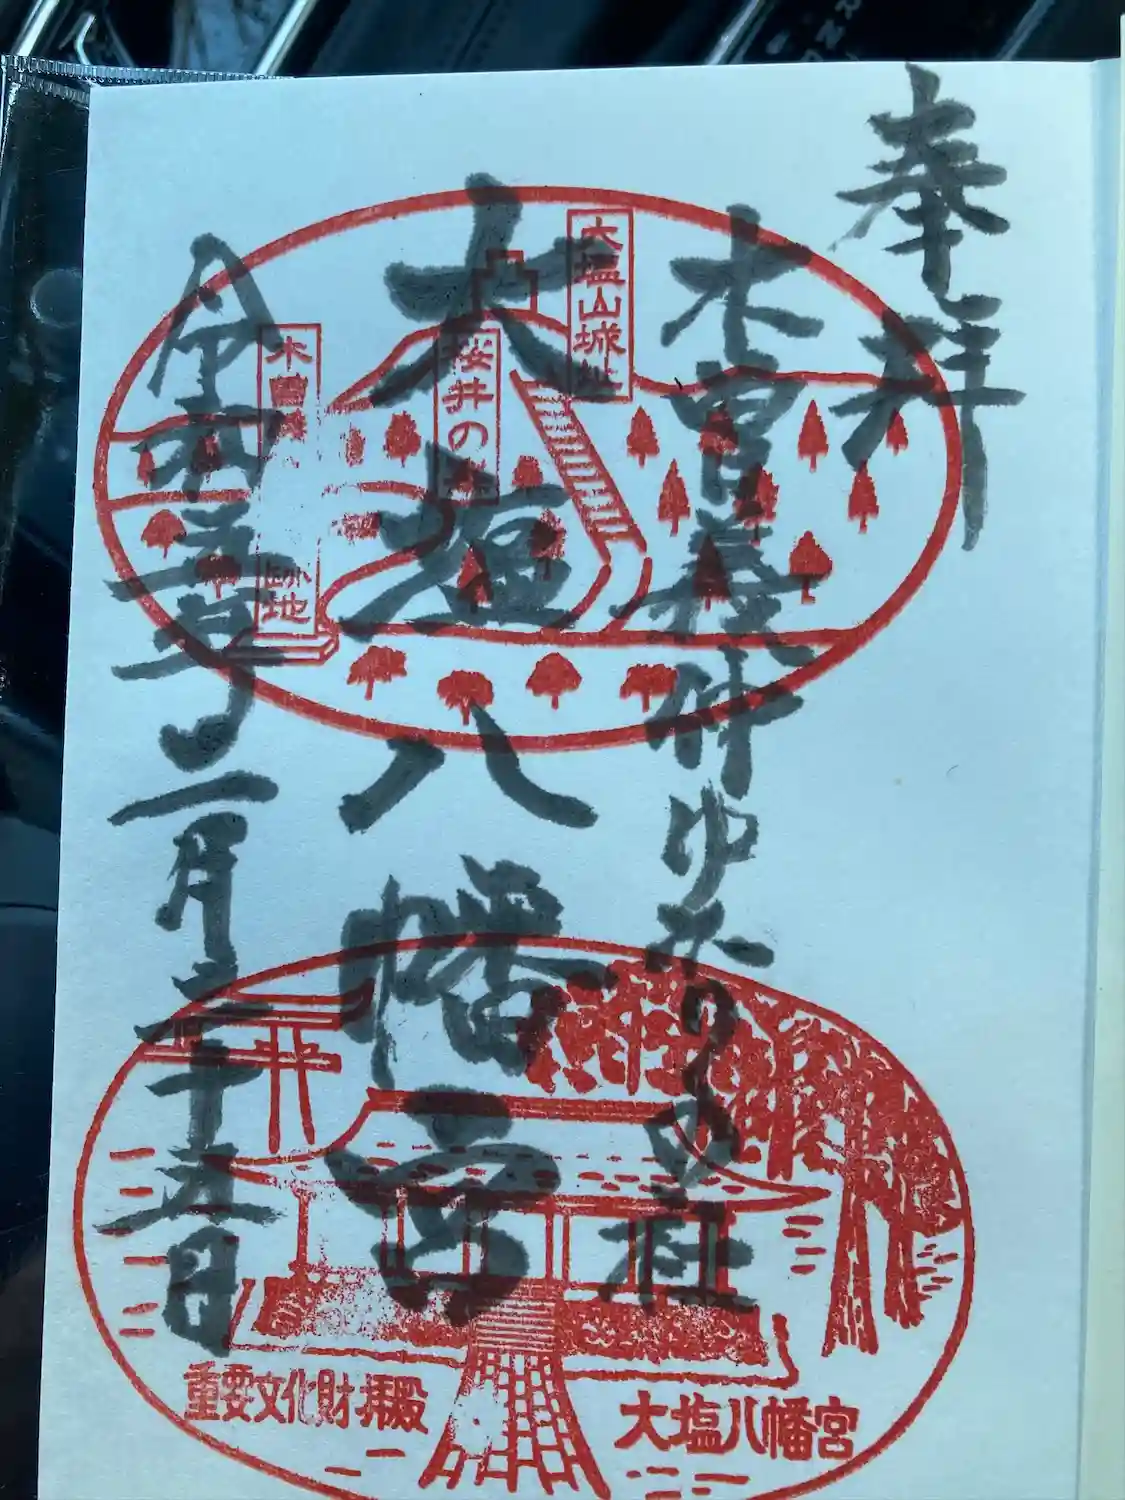 奉拝
木曽義仲ゆかりの社
大塩八幡宮
令和五年二月二十五日
大塩山城址
桜井の
木曽
跡地
重要文化財拝殿
大塩八幡宮